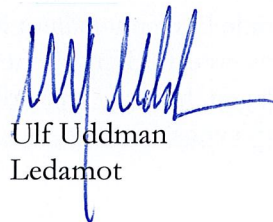 Ulf Uddman
Ledamot